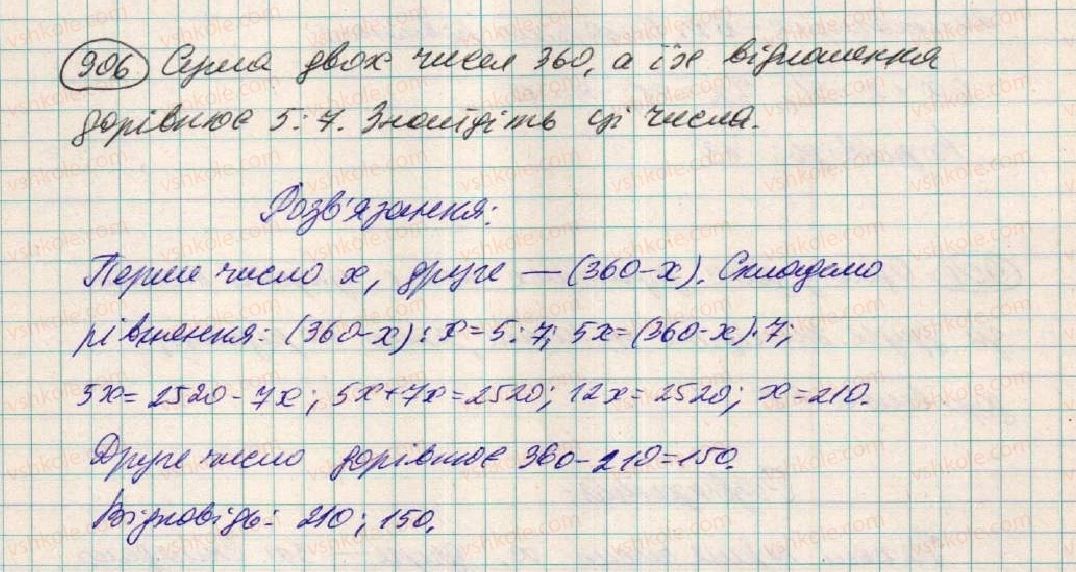 906 Сума двох чисел 360, а їх відношення
дорівнює 5:7. Знайдіть ці числа.
Розв'язання:
Перше число x, друге — (360-x). Складемо
рівняння: (360-x):x=5:7; 5x=(360-x)·7;
5x=2520-7x; 5x+7x=2520; 12x=2520; x=210.
Друге число дорівнює 360-210=150.
Відповідь: 210; 150.